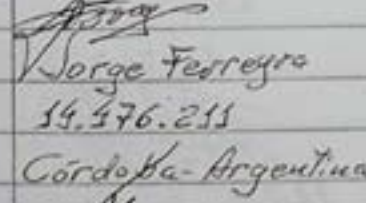 Jorge Ferreyra
14.976.211
Córdoba-Argentina